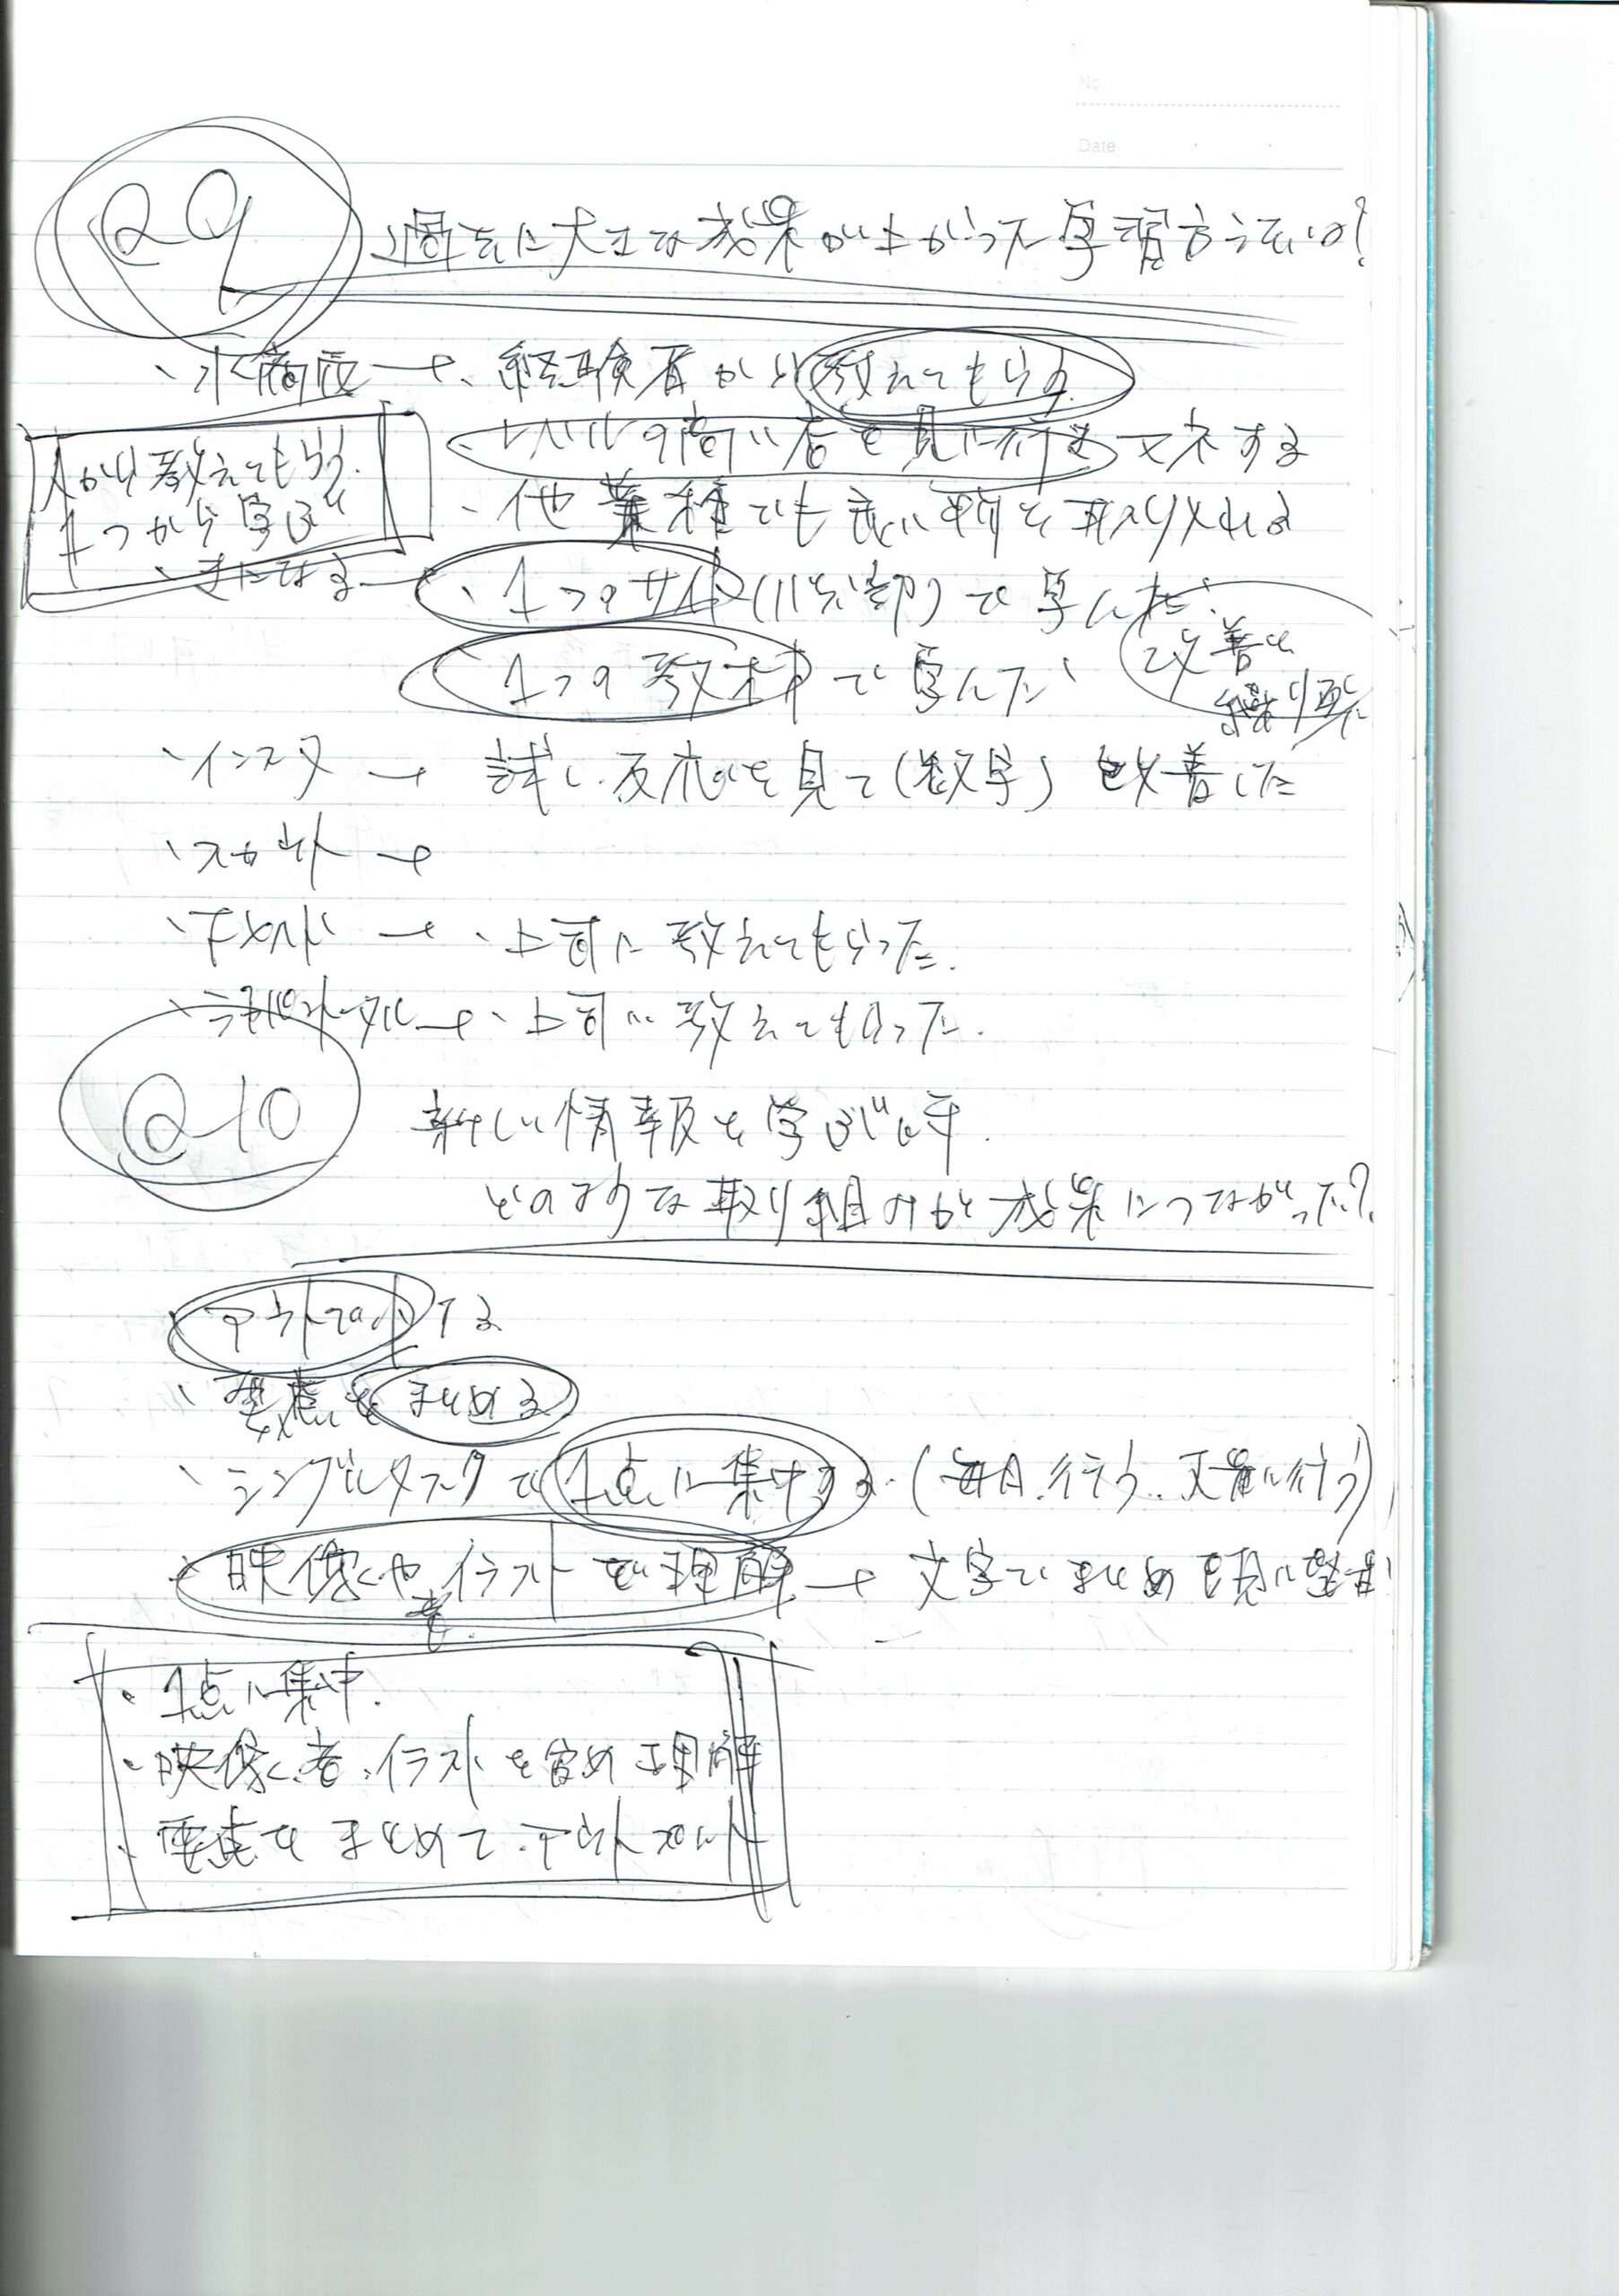 No
Date
Q9 過去に大きな成果が上がった学習方法は?
・水商売→・経験者から教えてもらう
・レベルの高い店を見に行き 文木する
・他業種でも良い所を取り入れる
人から教えてもらう.
1つから学ぶ
・1つのサイト()で学んだ.
1つの教材で学んだ
改善を繰り返し
・インスタ → 試し、反応を見て(数字)改善した
・スカウト →
・→・上司に教えてもらった.
・→・上司に教えてもらった.
Q10 新しい情報を学ぶ時.
どのような取り組みが成果につながった?
・アウトプットする
・要点をまとめる
・シングルタスクで1点に集中する.(毎日.行う..行う)
・映像やイラストで理解 → 文字でまとめ 頭に整理
音
・1点に集中.
・映像、音、イラストを含め理解
・要点をまとめて.アウトプット